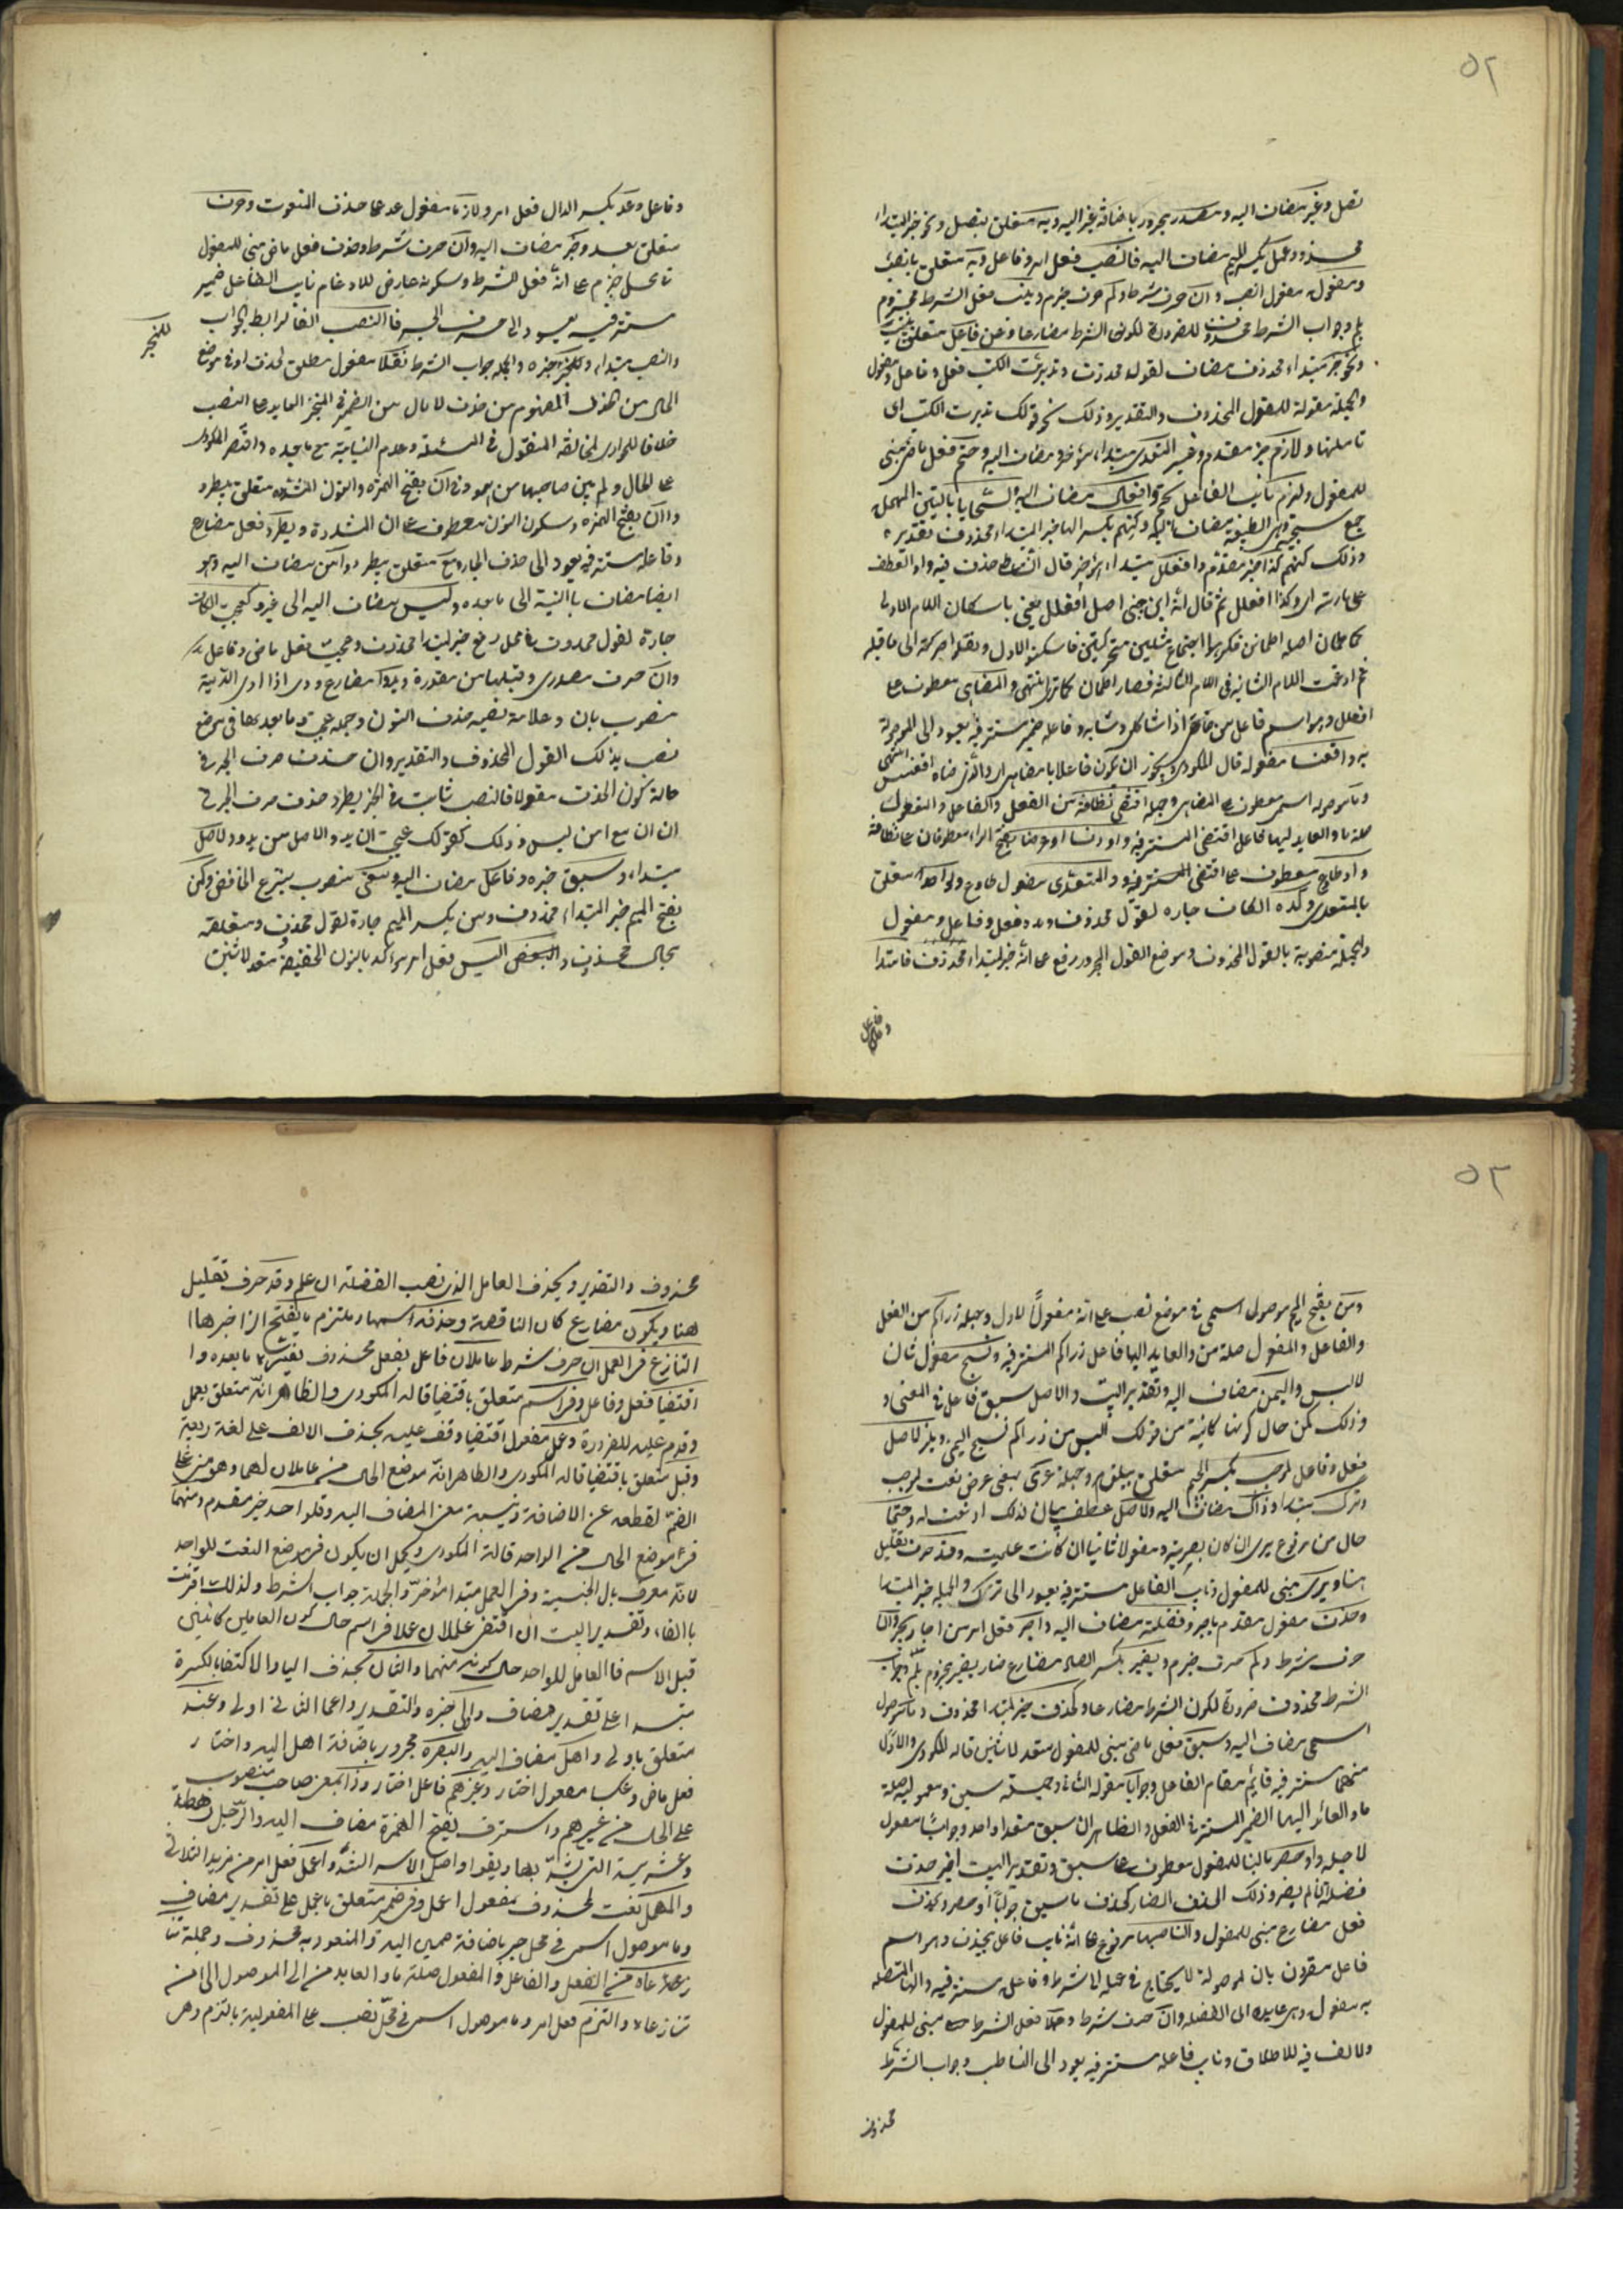 ٥٢
تصل وغير مضاف اليه ومصدر مجرور باضافة غير اليه وبه متعلق بتصل ونحو خبر لمبتداء
محذوف وعمل بكسر الميم مضاف اليه فانصب فعل امر وفاعل وبه متعلق بانصب
ومفعوله مفعول انصب وان حرف شرط ولم حرف جزم وينب فعل الشرط مجزوم
بلم وجواب الشرط محذوف للضرورة لكون الشرط مضارعا وعن فاعل متعلق بينب
ونحو خبر مبتداء محذوف مضاف لقول محذوف وتدبرت الكتب فعل وفاعل ومفعول
والجملة مقولة للقول المحذوف والتقدير وذلك نحو قولك تدبرت الكتب اى
تاملتها ولازم خبر مقدم وغير المتعدى مبتداء مؤخر ومضاف اليه وحتم فعل ماض مبنى
للمفعول ولزوم نائب الفاعل بحتم وافعال مضاف اليه والسجايا
جمع سجية وهى الطبيعة مضاف اليه وكنهم بكسر الهاء خبر لمبتداء محذوف تقديره
وذلك كنهم كذا خبر مقدم وافعلل مبتداء مؤخر قال الشاطبى حذف فيه واو العطف
على ما اى وكذا افعلل ثم قال ان ابن جنى اصل افعلل يعنى باسكان اللام الاولى
كاطمان اصله اطمانن فكرهوا اجتماع مثلين متحركين فاسكنوا الاول ونقلوا حركته الى ما قبله
ثم ادغمت اللام الثانية فى اللام الثالثة فصار اطمان كما ترى انتهى والمضاهى معطوف على
افعلل وهو اسم فاعل من ضاهى اذا شاكل وشابه وفاعله ضمير مستتر فيه يعود الى الموصولة
به واقعنسسا مفعوله قال المكودى ويجوز ان يكون فاعلا بالمضاهى اى والذى ضاهاه اقعنسس انتهى
وما موصول اسمى معطوف على المضاهى وجملة اقتضى نظافة من الفعل والفاعل والمفعول
صلة ما والعايد اليها فاعل اقتضى المستتر فيه واو دنسا او عرضا بفتح الراء معطوفان على نظافة
واو طاوع معطوف على اقتضى المستتر فيه والمتعدى مفعول طاوع ولواحد متعلق
بالمتعدى وكمده الكاف جاره لقول محذوف ومده فعل وفاعل ومفعول
والجملة منصوبة بالقول المحذوف وموضع القول المجرور رفع على انه خبر لمبتداء محذوف فامتدا
وفاعل
وفاعل وعد بكسر الدال فعل امر ولازما مفعول عد على حذف المنعوت وحرف
متعلق بعد وجر مضاف اليه وان حرف شرط وحذف فعل ماض مبنى للمفعول
فى محل جزم على انه فعل الشرط وسكونه عارض للادغام نايب الفاعل ضمير
مستتر فيه يعود الى حرف الجر فالنصب الفا لرابط الجواب
والنصب مبتداء وللمنجر خبره والجملة جواب الشرط نقلا مفعول مطلق لحذف او فى موضع
الحال من الحذف المفهوم من حذف لا حال من الضمير فى المنجر العايد على النصب
خلافا للهوارى لمخالفته المنقول فى المسئلة وعدم النيابة مع ما بعده واقتصر المكودى
على الحال ولم يبين صاحبها من اى وفى أن بفتح الهمزة والنون المشددة متعلق بيطرد
وأن بفتح الهمزة وسكون النون معطوف على ان المشددة ويطرد فعل مضارع
وفاعله مستتر فيه يعود الى حذف الجار ومع متعلق بيطرد وامن مضاف اليه وهو
ايضا مضاف بالنية الى ما بعده ولبس مضاف اليه الى غير وكعجبت الكاف
جارة لقول محذوف فى محل رفع خبر لمبتدا محذوف وعجبت فعل ماض وفاعل
وان حرف مصدرى وقبلها من مقدرة ويدوا مضارع ودى اذا ادى الدية
منصوب بان وعلامة نصبه حذف النون وجملة عجبت وما بعدها فى موضع
نصب بذلك القول المحذوف والتقدير وان حذفت حرف الجر فى
حالة كون الحذف منقولا فالنصب ثابت للمنجر يطرد حذف حرف الجر فى
ان ان مع امن لبس وذلك كقولك عجبت ان يدوا والاصل من يدوا والاصل
مبتداء وسبق خبره وفاعل مضاف اليه ومعنى منصوب بنزع الخافض وكمن
بفتح الميم خبر المبتداء محذوف ومن بكسر الميم جارة لقول محذوف ومتعلقه
بحال محذوف والبسن فعل امر مؤكد بالنون الخفيفة متعد لاثنين
للمنجر
٥٣
ومن بفتح الميم موصول اسمى فى موضع نصب على انه مفعولاً لاول وجملة زاركم من الفعل
والفاعل والمفعول صلة من والعايد اليها فاعل زاركم المستتر فيه ونسج مفعول ثان
لالبس واليمن مضاف اليه وتقدير البيت والاصل سبق فاعل فى المعنى و
وذلك كمن حال كونها كاينة من قولك البسن من زاركم نسج اليمن ويلزم الاصل
فعل وفاعل لموجب بكسر الجيم متعلق بيلزم وجملة عرى بمعنى عرض نعت لموجب
وترك مبتدا وذاك مضاف اليه والاصل عطف بيان لذاك او نعت له وحتما
حال من مرفوع يرى ان كان بصرية ومفعولا ثانيا ان كانت علمية وقد حرف تقليل
هنا ويرى مبنى للمفعول ونايب الفاعل مستتر فيه يعود الى ترك والجملة خبر المبتدا
وحذف مفعول مقدم باجز وفضلة مضاف اليه واجز فعل امر من اجاز
حرف شرط ولم حرف جزم ويضر بكسر الضاد مضارع ضار يضير مجزوم بلم وجواب
الشرط محذوف ضرورة لكون الشرط مضارعا وكحذف خبر لمبتدا محذوف وما موصول
اسمى مضاف اليه وسيق فعل ماض مبنى للمفعول متعد لاثنين قاله المكودى والاول
منهما مستتر فيه قايم مقام الفاعل وجوابا مفعوله الثانى وجملة سيق ومعموليه صلة
ما والعائد اليها الضمير المستتر فى الفعل والظاهر ان سيق متعد لواحد وجوابًا مفعول
لاجله واو حصر بالبنا للمفعول معطوف على سيق وتقدير البيت اجز حذف
فضلة ان لم يضر وذلك الحذف الضار كحذف ما سيق جوابًا او حصر ويحذف
فعل مضارع مبنى للمفعول والناصبها مرفوع على انه نايب فاعل يحذف وهو اسم
فاعل مقرون بال الموصولة لا يحتاج فى عمله الى شرط وفاعله مستتر فيه والهاء المتصلة
به مفعوله وهى عايدة الى الفضله وان حرف شرط وعلما فعل الشرط مبنى للمفعول
والالف فيه للاطلاق ونايب فاعله مستتر فيه يعود الى الناصب وجواب الشرط
محذوف
محذوف والتقدير ويحذف العامل الذى نصب الفضلة ان علم وقد حرف تقليل
هنا ويكون مضارع كان الناقصة وحذفه اسمها وملتزم بفتح الزا خبرها
التنازع فى العمل ان حرف شرط عاملان فاعل بفعل محذوف يفسره ما بعده وا
اقتضيا فعل وفاعل وفى اسم متعلق باقتضيا قاله المكودى والظاهر انه متعلق بعمل
وقدم عليه للضرورة وعمل مفعول اقتضيا وقف عليه بحذف الالف على لغة ربيعة
وقبل متعلق باقتضيا قاله المكودى والظاهر انه موضع الحال من عاملان لهما وهو مبنى على
الضم لقطعه عن الاضافة ونية معنى المضاف اليه وللواحد خبر مقدم ومنهما
فى موضع الحال من الواحد قاله المكودى ويحتمل ان يكون فى موضع النعت للواحد
لانه معرف بال الجنسية وفى العمل مبتدا مؤخر والجملة جواب الشرط ولذلك اقترنت
بالفاء وتقدير البيت ان اقتضى عاملان عملا فى اسم حال كون العاملين كائنين
قبل الاسم فالعامل للواحد حال كونه منهما والثان بحذف اليا والاكتفا بالكسرة
مبتدا على تقدير مضاف واولى خبره والتقدير واعمال الثانى اولى وعند
متعلق باولى واهل مضاف اليه والبصرة مجرور باضافة اهل اليه واختار
فعل ماض وعكسا مفعول اختار وغيرهم فاعل اختار وذا بمعنى صاحب منصوب
على الحال من غيرهم واسرة بفتح الهمزة مضاف اليه والرجل رهطه
وعشيرته التى يشد بها ويقوا واصل الاسر الشد واعمل فعل امر من مزيد الثلاثى
والمهمل نعت لمحذوف مفعول اعمل وفى ضمير متعلق باعمل على تقدير مضاف
وما موصول اسمى فى محل جر باضافة ضمير اليه والمنعوت به محذوف وجملة تنا
زعاه من الفعل والفاعل والمفعول صلة ما والعايد من الى الموصول الهاء من
تنازعاه والتزم فعل امر وما موصول اسمى فى محل نصب على المفعولية بالتزم وهى